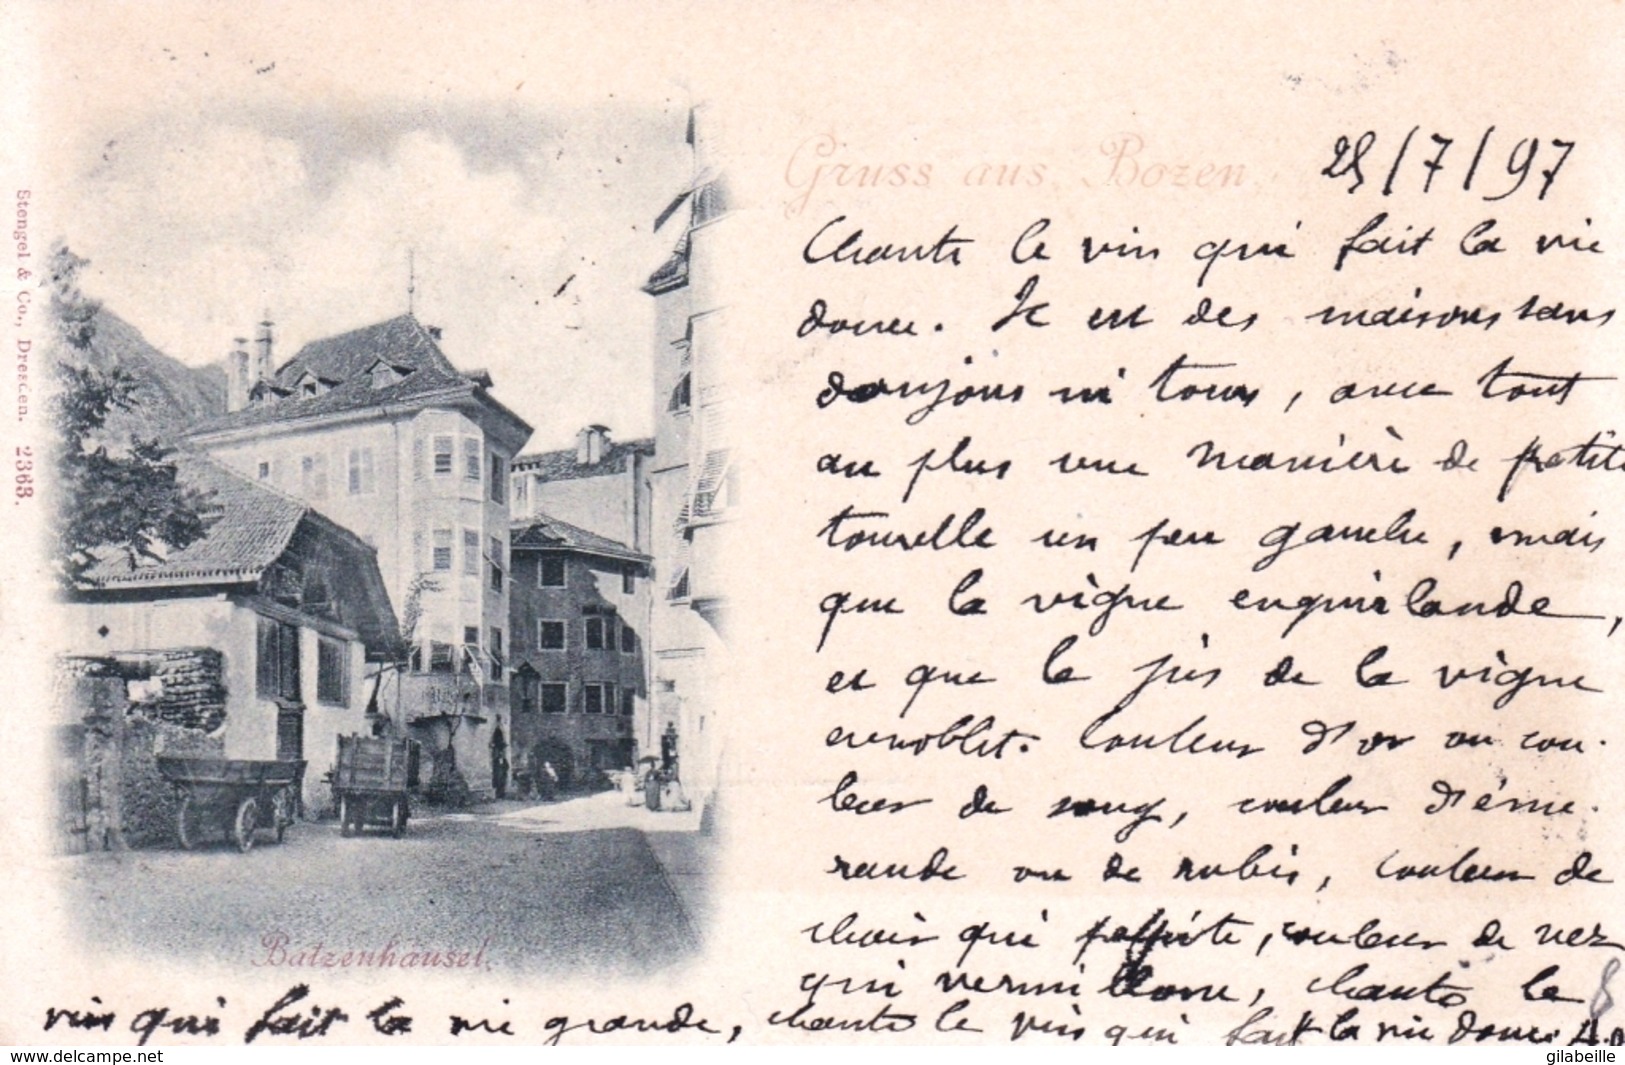 Gruss aus Bozen
25/7/97
Chante le vin qui fait la vie
douce. Je est des maisons sans
donjons ni tours, avec tout
au plus une manière de petite
tourelle un peu gauche, mais
que la vigne enguirlande,
et que le jus de la vigne
ennoblit. Couleur d'or ou cou-
leur de sang, couleur d'éme-
raude ou de rubis, couleur de
chair qui palpite, couleur de nez
qui vermillonne, chante le
vin qui fait la vie grande, chante le vin qui fait la vie douce
Batzenhäusel.
Stengel & Co., Dresden. 2363.
www.delcampe.net
gilabeille